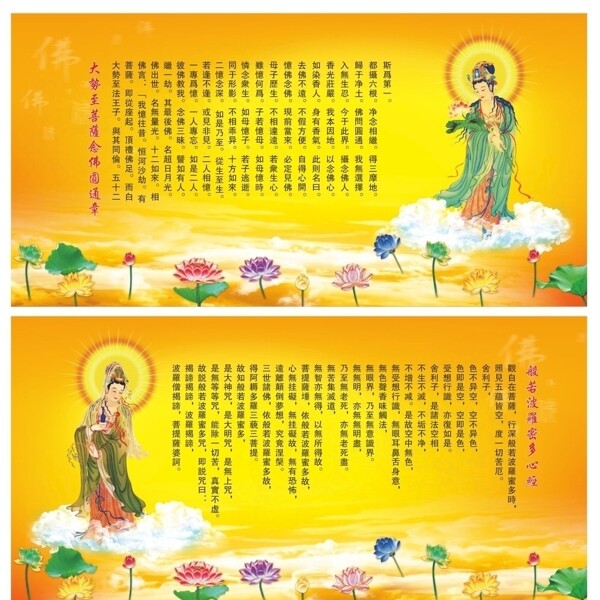 大勢至菩薩念佛圓通章
大勢至法王子。與其同倫。五十二
菩薩。即從座起。頂禮佛足。而白
佛言:「我憶往昔。恒河沙劫。有
佛出世。名無量光。十二如來。相
繼一劫。其最後佛。名超日月光。
彼佛教我。念佛三昧。譬如有人。
一專爲憶。一人專忘。如是二人。
若逢不逢。或見非見。二人相憶。
二憶念深。如是乃至。從生至生。
同于形影。不相乖异。十方如來。
憐念衆生。如母憶子。若子逃逝。
雖憶何爲。子若憶母。如母憶時。
母子歷生。不相違遠。若衆生心。
憶佛念佛。現前當來。必定見佛。
去佛不遠。不假方便。自得心開。
如染香人。身有香氣。此則名曰。
香光莊嚴。我本因地。以念佛心。
入無生忍。今于此界。攝念佛人。
歸于净土。佛問圓通。我無選擇。
都攝六根。净念相繼。得三摩地。
斯爲第一。
佛
佛
佛
般若波羅密多心經
觀自在菩薩，行深般若波羅蜜多時，
照見五蘊皆空，度一切苦厄。
舍利子，
色不异空，空不异色，
色即是空，空即是色，
受想行識，亦復如是。
舍利子，是諸法空相，
不生不滅，不垢不净，
不增不减。是故空中無色，
無受想行識，無眼耳鼻舌身意，
無色聲香味觸法，
無眼界，乃至無意識界。
無無明，亦無無明盡，
乃至無老死，亦無老死盡。
無苦集滅道，
無智亦無得，以無所得故。
菩提薩埵，依般若波羅蜜多故，
心無挂礙，無挂礙故，無有恐怖，
遠離顛倒夢想，究竟涅槃。
三世諸佛，依般若波羅蜜多故，
得阿耨多羅三藐三菩提。
故知般若波羅蜜多，
是大神咒，是大明咒，是無上咒，
是無等等咒，能除一切苦，真實不虛。
故説般若波羅蜜多咒，即説咒曰：
揭諦揭諦，波羅揭諦，
波羅僧揭諦，菩提薩婆訶。
佛